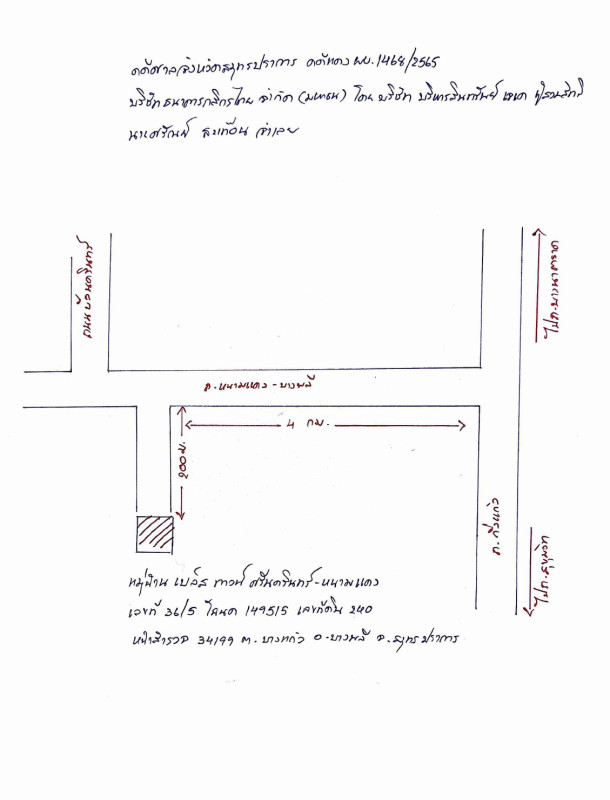 คดีศาลจังหวัดสมุทรปราการ คดีแดง ผบ.1468/2565
บริษัท ธนาคารกสิกรไทย จำกัด (มหาชน) โดย บริษัท บริหารสินทรัพย์ เจเค ผู้สวมสิทธิ
นายศรัณย์ สะเทือน จำเลย
ถนนศรีนครินทร์
ไปถ.บางนาตราด
ถ.หนามแดง-บางพลี
4 กม.
200 ม.
ถ.กิ่งแก้ว
ไปถ.สุขุมวิท
หมู่บ้าน เบล์ส ทาวน์ ศรีนครินทร์-หนามแดง
เลขที่ 36/5 โฉนด 149515 เลขที่ดิน 240
หน้าสำรวจ 34199 ต.บางแก้ว อ.บางพลี จ.สมุทรปราการ